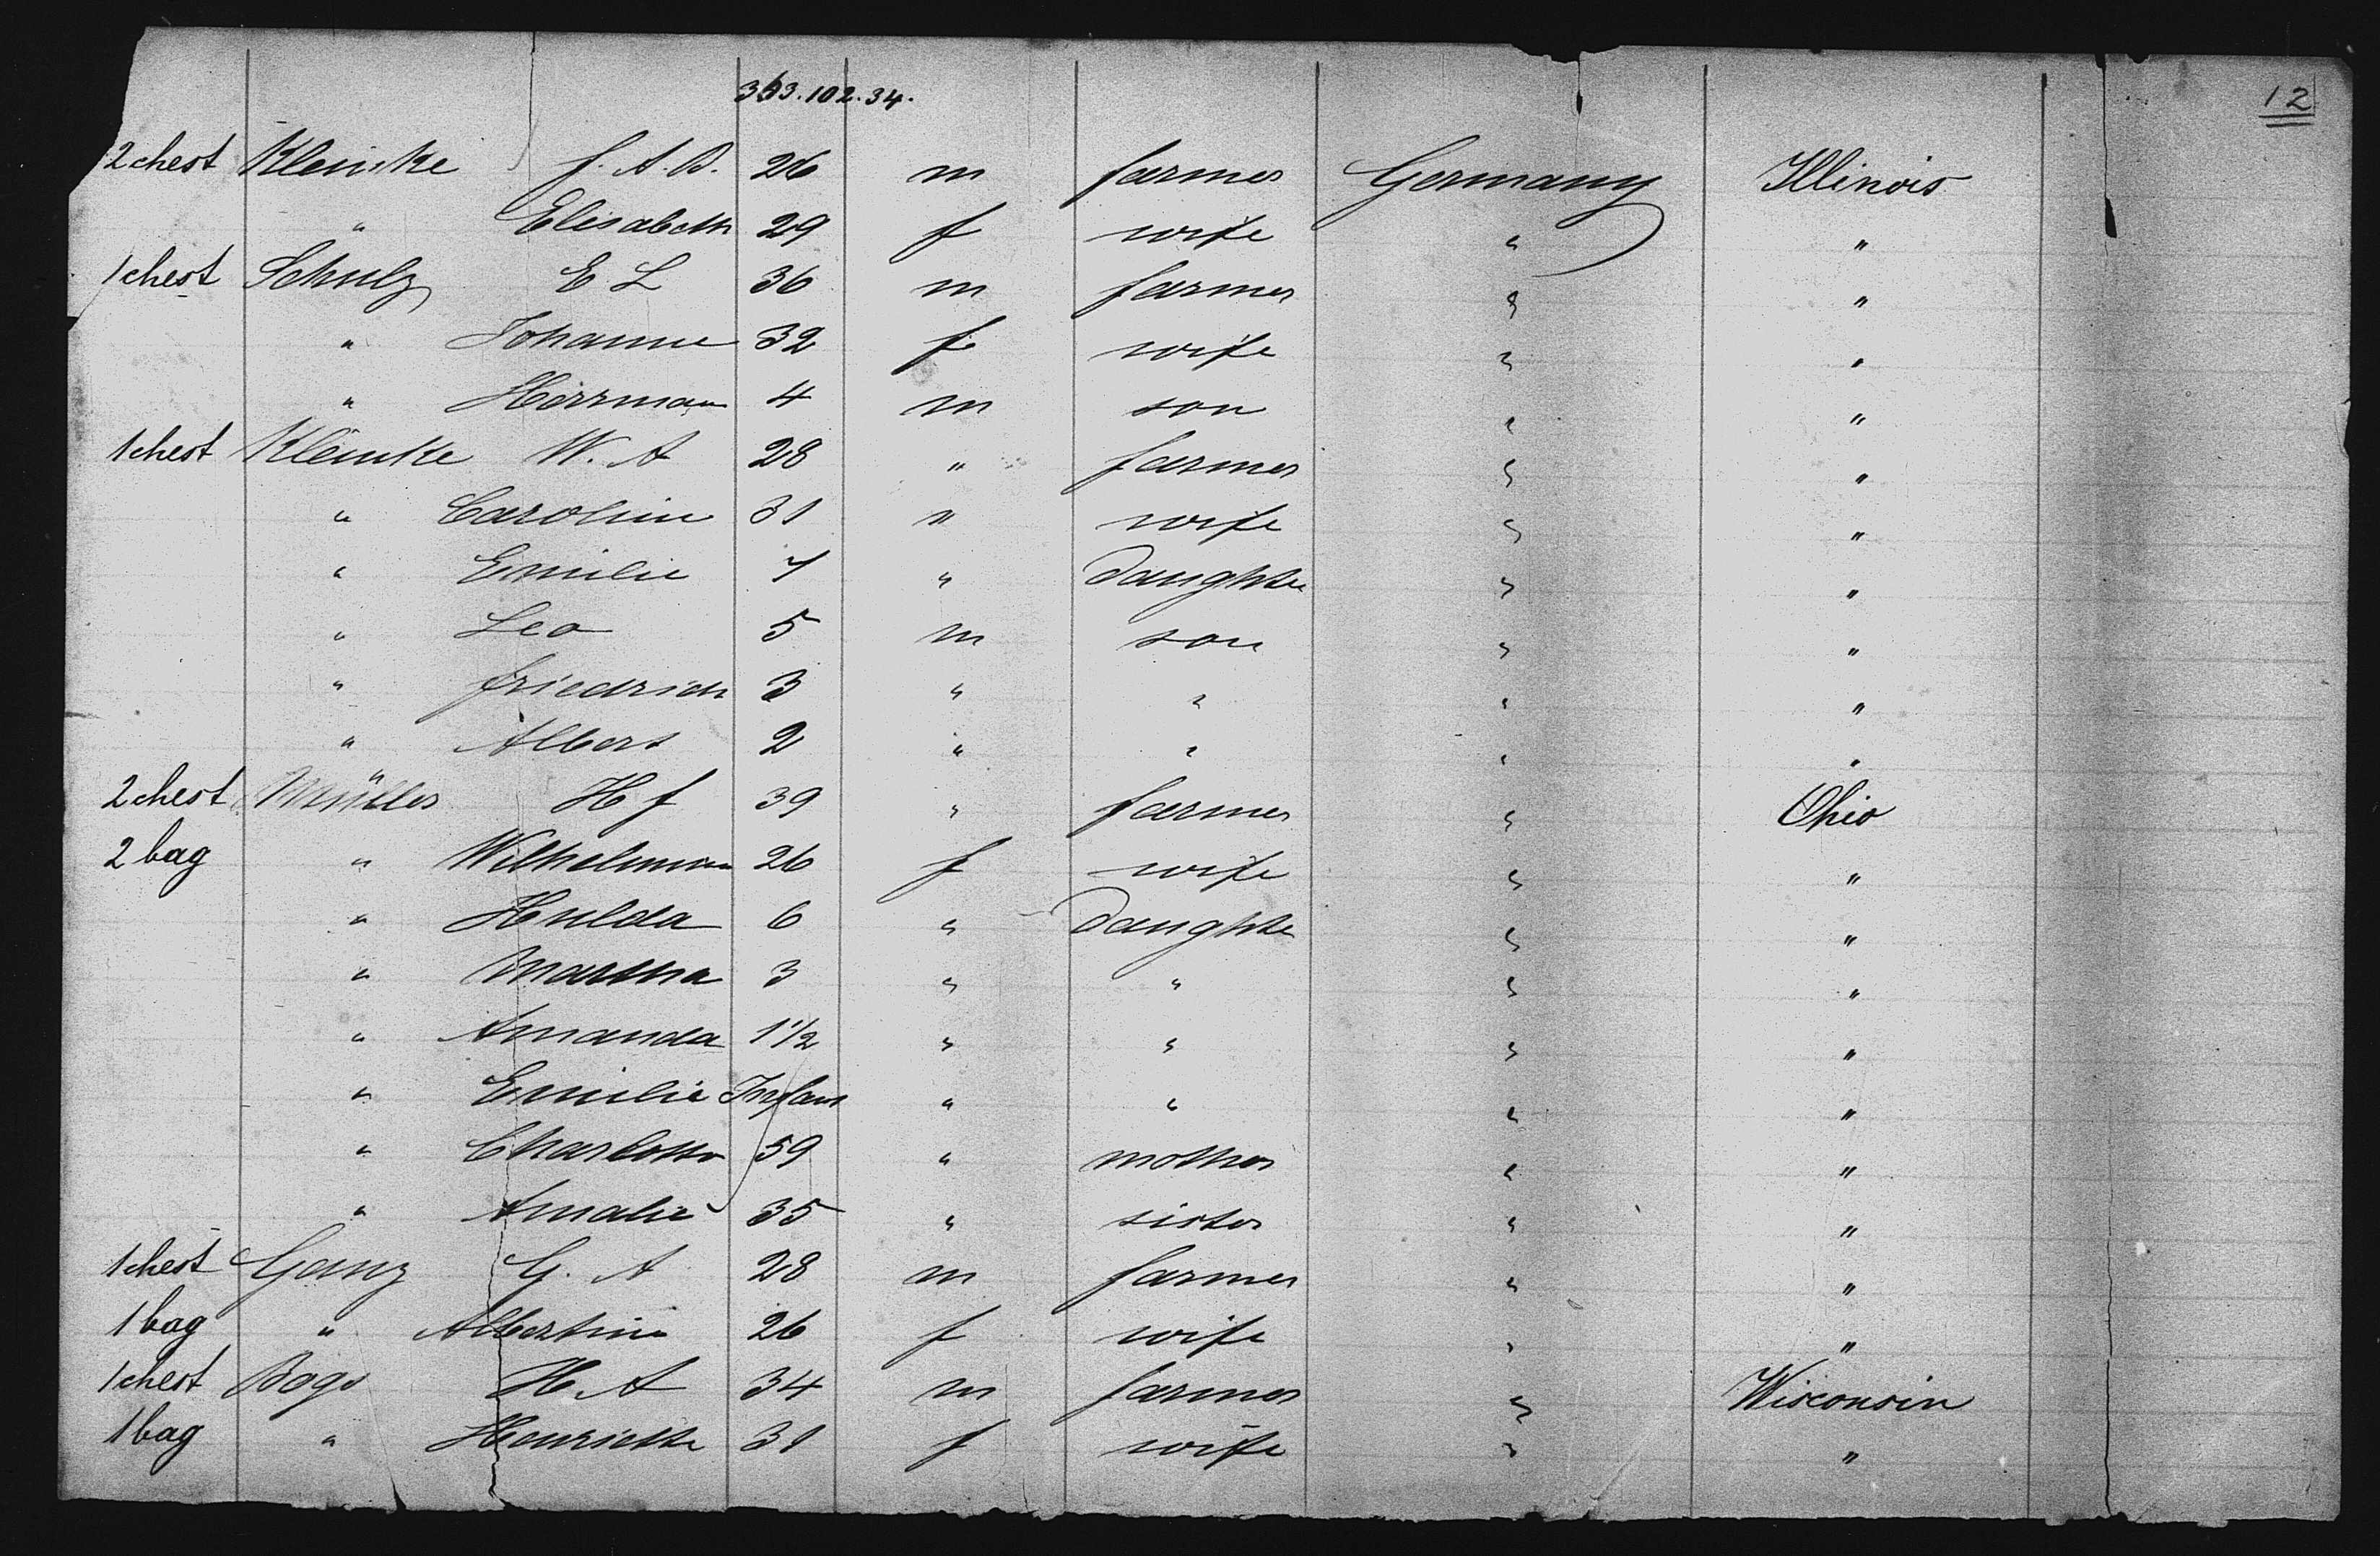 353.102.34.
12
2 chest Kleinke f. A. B. 26 m farmer Germany Illinois
" Elisabeth 29 f wife " "
1 chest Schulz E L 36 m farmer " "
" Johanne 32 f wife " "
" Herrman 4 m son " "
1 chest Kleinke W. A 28 " farmer " "
" Caroline 31 " wife " "
" Emilie 7 " daughter " "
" Leo 5 m son " "
" friedrich 3 " " " "
" Albert 2 " " " "
2 chest Müller H f 39 " farmer " Ohio
2 bag " Wilhelmine 26 f wife " "
" Hulda 6 " daughter " "
" Martha 3 " " " "
" Amanda 1 1/2 " " " "
" Emilie Infant " " " "
" Charlotte 59 " mother " "
" Amalie 35 " sister " "
1 chest Ganz G. A 28 m farmer " "
1 bag " Albertine 26 f wife " "
1 chest H. A 34 m farmer " Wisconsin
1 bag " Henriette 31 f wife " "